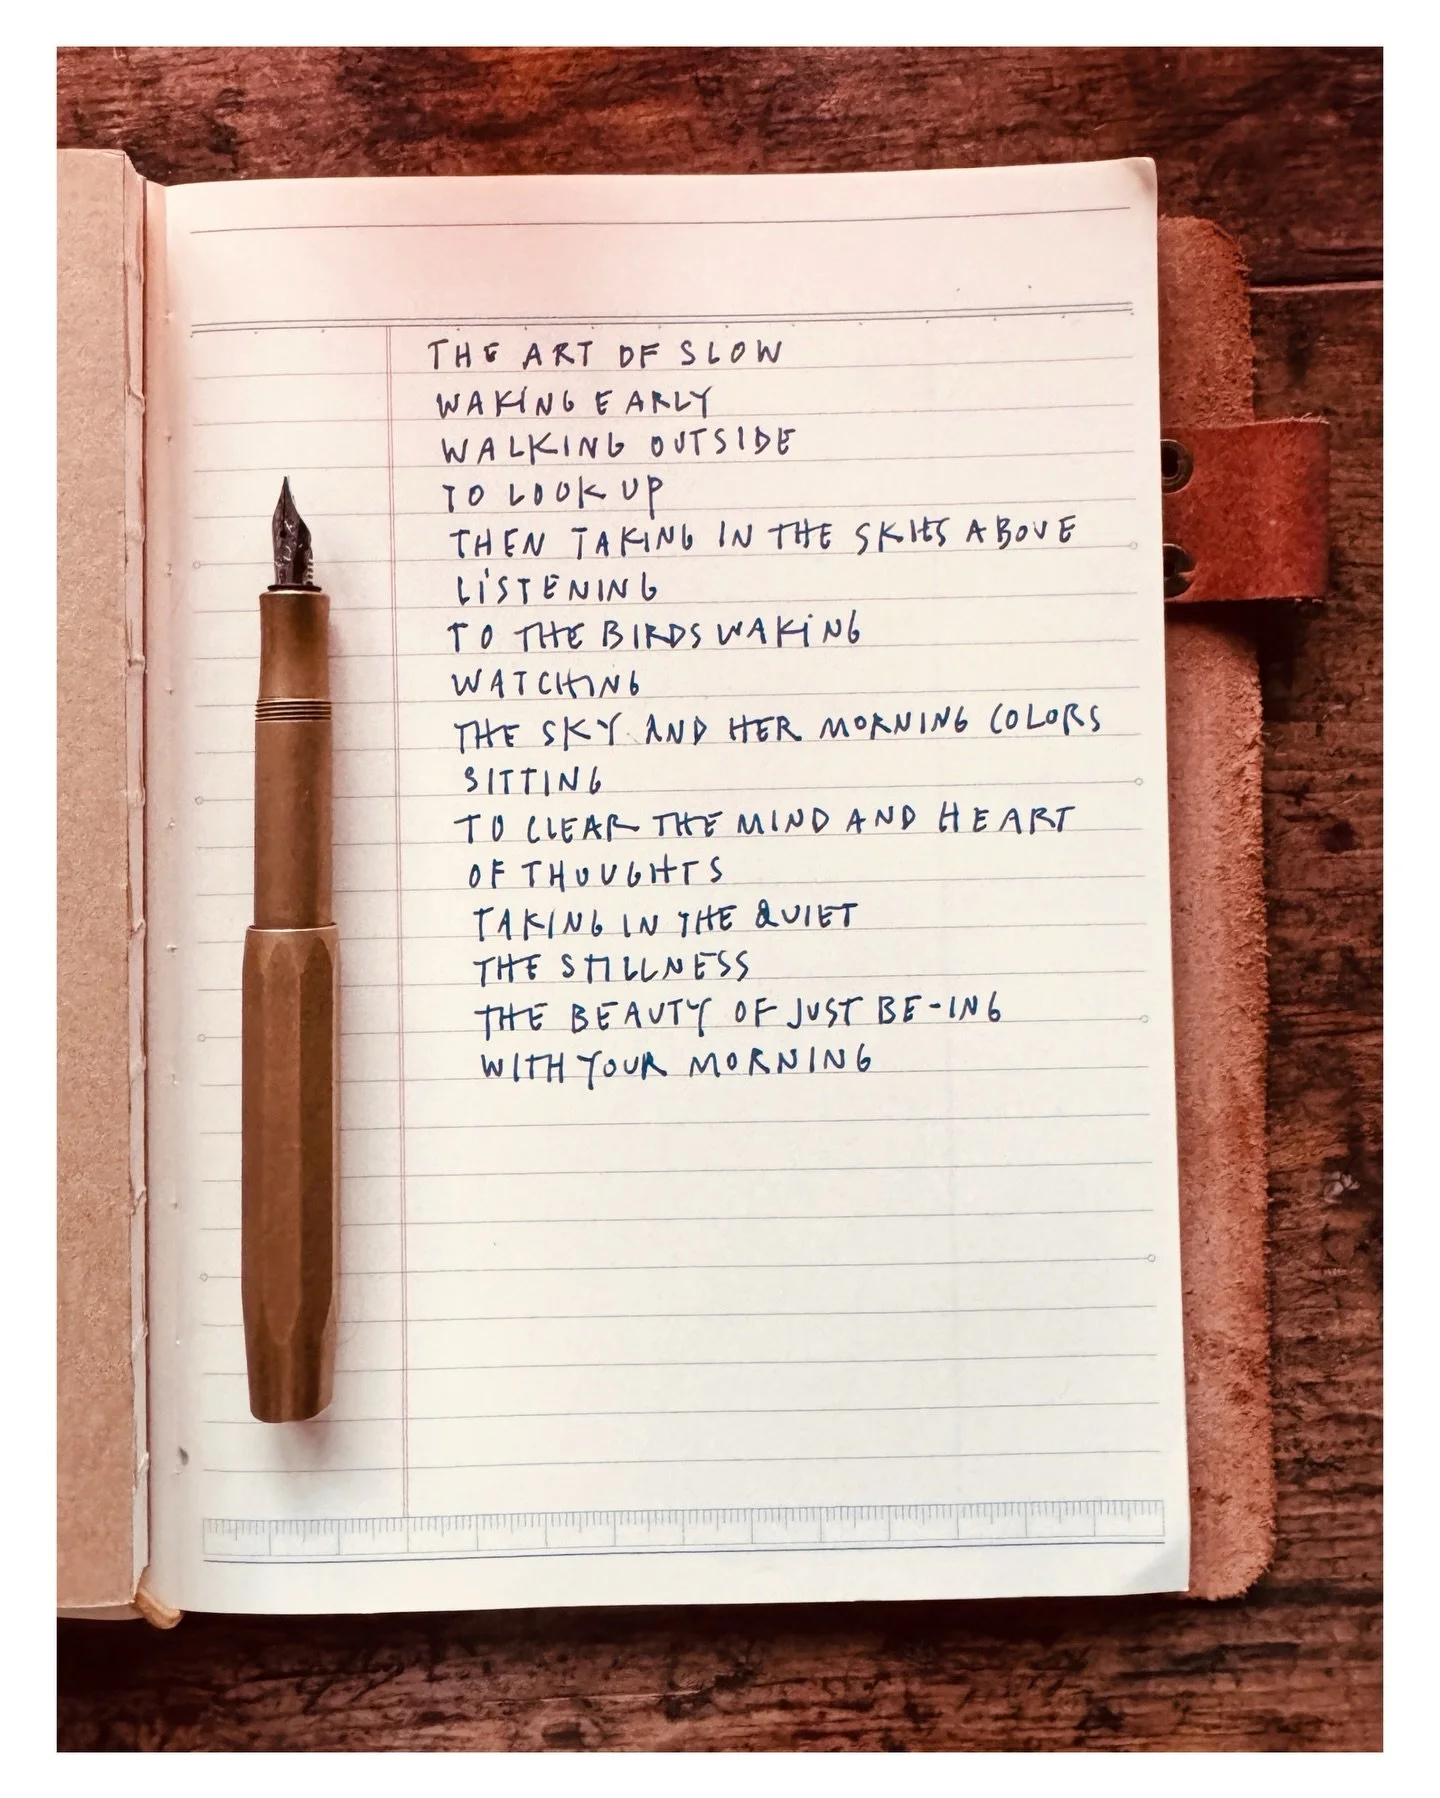 THE ART OF SLOW
WAKING EARLY
WALKING OUTSIDE
TO LOOK UP
THEN TAKING IN THE SKIES ABOVE
LISTENING
TO THE BIRDS WAKING
WATCHING
THE SKY AND HER MORNING COLORS
SITTING
TO CLEAR THE MIND AND HEART
OF THOUGHTS
TAKING IN THE QUIET
THE STILLNESS
THE BEAUTY OF JUST BE-ING
WITH YOUR MORNING